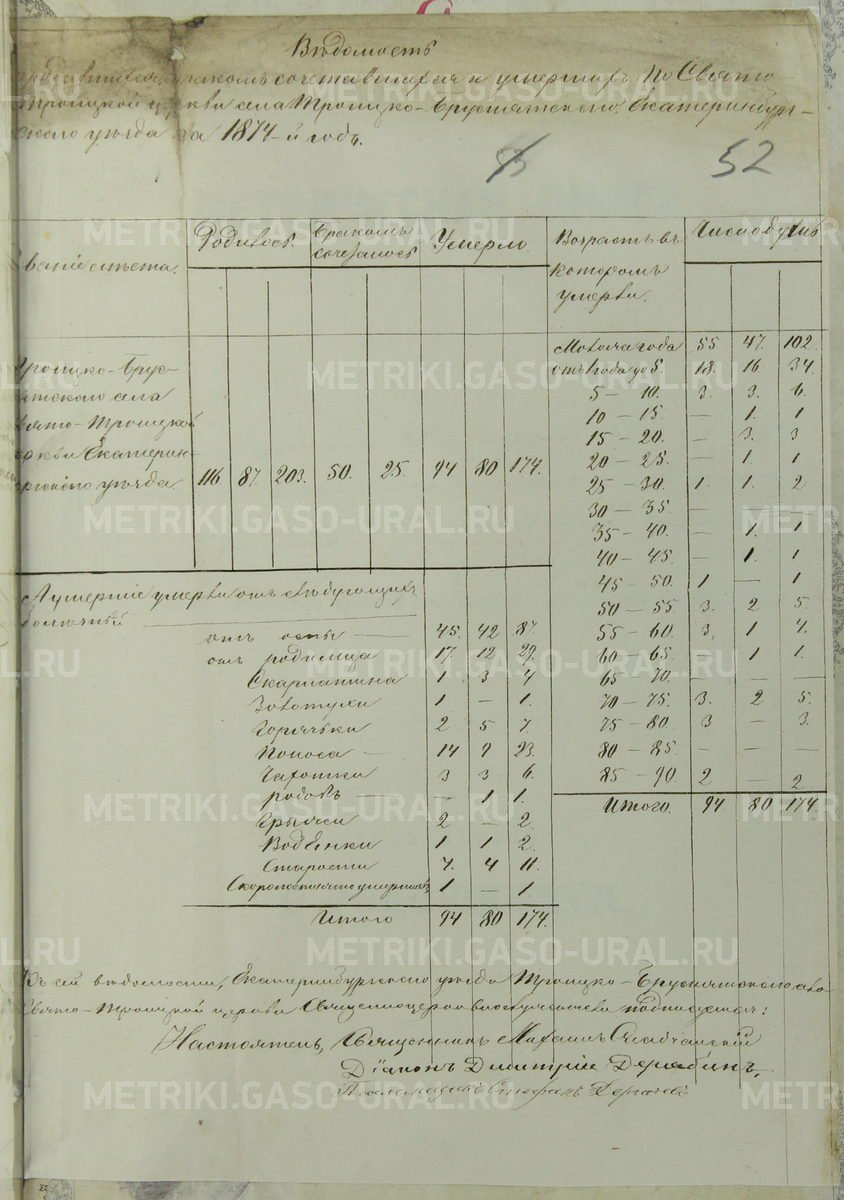 Вѣдомость
родившихся, бракомъ сочетавшихся и умершихъ по Свято
Троицкой церкви села Троицко-Бруснятскаго, Екатеринбург-
скаго уѣзда за 1874-й годъ.
52
Званіе мѣста.
Родилось.
Бракомъ сочеталось
Умерло.
Возрастъ въ которомъ умерли.
Число душъ
Троицко-Брус-
нятскаго села
Свято-Троицкой
церкви Екатерин-
бургскаго уѣзда 116 87. 203. 50. 25. 94 80 174.
Моложе года 55 47. 102.
отъ 1 года до 5. 18. 16. 34.
5 — 10. 3. 3. 6.
10 — 15. — 1. 1
15 — 20. — 3. 3
20 — 25. — 1 1
25 — 30. 1. 1. 2
30 — 35. — — —
35 — 40. — 1. 1
40 — 45. — 1. 1
45 — 50. 1 — 1
50 — 55. 3. 2 5.
55 — 60. 3. 1 4.
60 — 65. — 1 1.
65 — 70. — — —
70 — 75. 3. 2 5.
75 — 80. 3 — 3.
80 — 85. — — —
85 — 90. 2 — 2
Итого. 94 80 174.
А умершіе умерли отъ слѣдующихъ
болѣзней
отъ оспы — 45. 42 87.
отъ родимца 17. 12 29.
Скарлатина 1 3 4
Золотухи 1 — 1.
Горячьки 2 5 7.
Поноса — 14 9 23.
Чахотки 3 3 6.
родовъ — 1 1.
Грыжи 2 — 2.
Водѣнки 1 1 2.
Старости 7. 4 11.
Скоропостижно умершихъ 1 — 1.
Итого 94 80 174.
Къ сей вѣдомости, Екатеринбургскаго уѣзда Троицко-Бруснятскаго села
Свято-Троицкой церкви Священноцерковнослужители подписуемся:
Настоятель, Священникъ Михаилъ
Діаконъ Димитрій Дерябинъ.
Псаломщикъ Стефанъ
METRIKI.GASO-URAL.RU